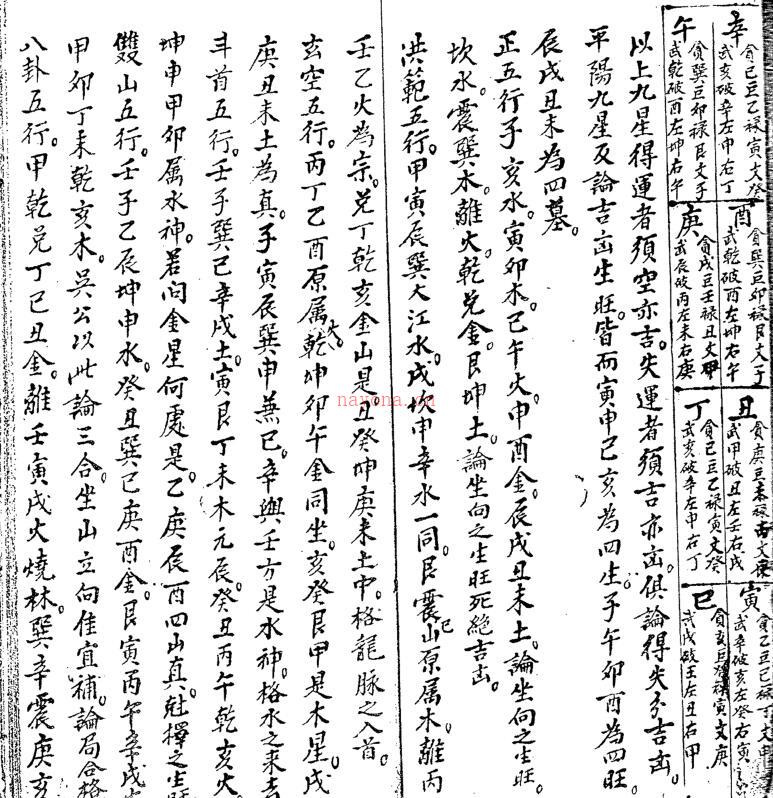 辛
貪己巨乙祿寅文癸
武亥破辛左申右丁
酉
貪巽巨卯祿艮文子
武乾破酉左坤右午
丑
貪庚巨未
武甲破丑左壬右戌
寅
貪乙巨巳祿丁文申
武辛破亥左癸右寅
午
貪巽巨卯祿艮文子
武乾破酉左坤右午
庚
貪戌巨壬祿丑文甲
武辰破丙左未右庚
丁
貪巳巨乙祿寅文癸
武亥破辛左申右丁
巳
貪亥巨 祿寅文庚
武戌破壬左丑右甲
以上九星得運者須空亦吉。失運者須吉亦凶。俱論得失分吉凶。
平陽九星及論吉凶生旺。皆而寅申巳亥為四生。子午卯酉為四旺。
辰戌丑未為四墓。
正五行子亥水。寅卯木。巳午火。申酉金。辰戌丑未土。論坐向之生旺。
坎水。震巽木。離火。乾兌金。艮坤土。論坐向之生旺死絕吉凶。
洪範五行。甲寅辰巽大江水。戌坎申辛水一同。艮震巳山原属木。離丙
壬乙火為宗。兌丁乾亥金山是。丑癸坤庚未土中。格龍脉之入首。
玄空五行。丙丁乙酉原属火。乾坤卯午金同坐。亥癸艮甲是木星。戌
庚丑未土為真。子寅辰巽申兼巳。辛與壬方是水神。格水之來去
斗首五行。壬子巽巳辛戌土。寅艮丁未木元辰。癸丑丙午乾亥火。
坤申甲卯属水神。若问金星何處是。乙庚辰酉四山真。尅擇之生旺
雙山五行。壬子乙辰坤申水。癸丑巽巳庚酉金。艮寅丙午辛戌
甲卯丁未乾亥木。吳公以此論三合。坐山立向隹宜補。論局合格
八卦五行。甲乾兌丁巳丑金。離壬寅戌火燒林。巽辛震庚亥
nayona.cn